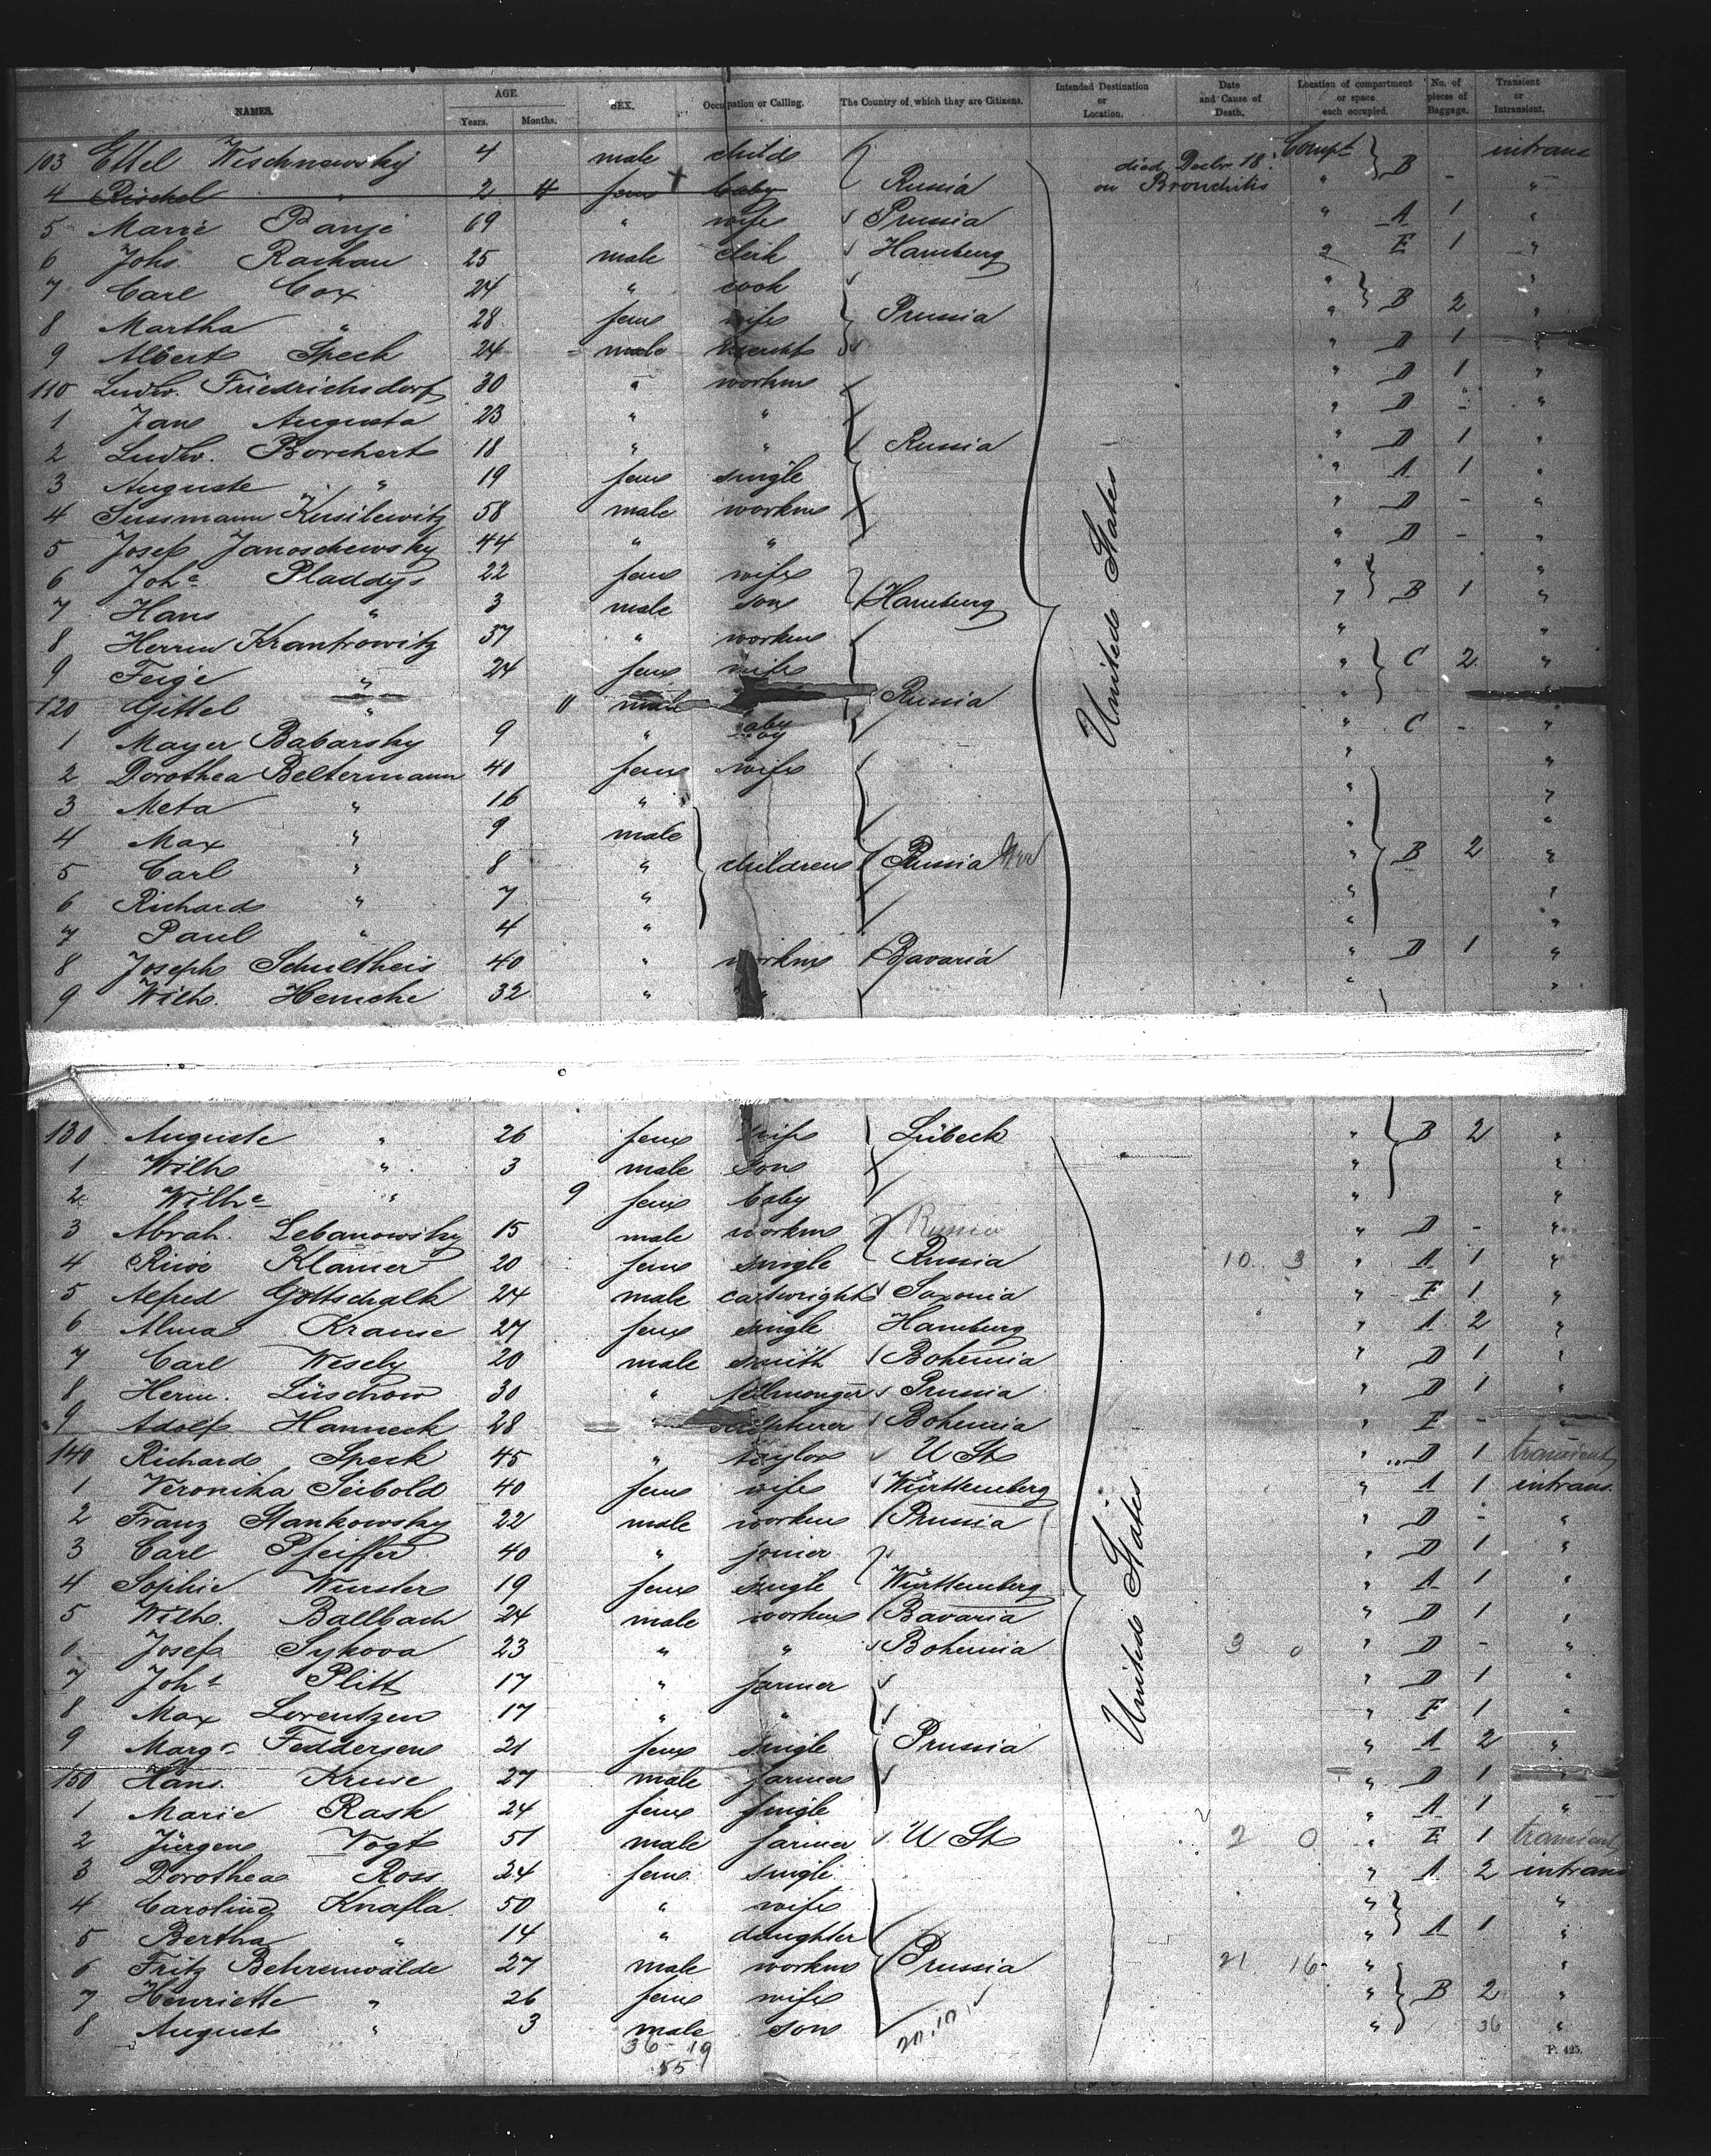 NAMES. AGE. Years. Months. SEX. Occupation or Calling. The Country of which they are Citizens. Intended Destination or Location. Date and Cause of Death. Location of compartment or space each occupied. No. of pieces of Baggage. Transient or Intransient.
103 Ettel Wischnewsky 4 male child Compt B intrans
4 Rischel " 2 4 fem baby Russia died Decbr 18. on Bronchitis " - "
5 Marie Panje 69 " wife Prussia " A 1 "
6 Johs. Rachau 25 male clerk Hamburg " E 1 "
7 Carl Cox 24 " cook " "
8 Martha " 28 fem wife Prussia " B 2 "
9 Albert Spech 24 male " D 1 "
110 Ludw. Friedrichsdorf 30 " workm " D 1 "
1 Jans Augusta 23 " " " D - "
2 Ludw. Borchert 18 " " Russia " D 1 "
3 Auguste " 19 fem single " A 1 "
4 Sussmann Kusilewitz 58 male workm " D - "
5 Josef Janoschewsky 44 " " " D - "
6 Joh.e Pladdys 22 fem wife " "
7 Hans " 3 male son Hamburg " B 1 "
8 Herrm Krantrowitz 37 " workm " "
9 Feige " 24 fem wife " C 2 "
120 Gittel " 11 male baby Russia "
1 Mayer Babarsky 9 " boy " C - "
2 Dorothea Beltermann 40 fem wife " "
3 Meta " 16 " " "
4 Max " 9 male " "
5 Carl " 8 " children Prussia " B 2 "
6 Richard " 7 " " "
7 Paul " 4 " " "
8 Joseph Schultheis 40 " workm Bavaria " D 1 "
9 Wilh. Hemcke 32 " " " "
United States
130 Auguste " 26 fem wife Lübeck " B 2 "
1 Wilh " 3 male son " "
2 Wilh.e " 9 fem baby " "
3 Abrah. Lebanowsky 15 male workm Russia " D - "
4 Riwe Klamer 20 fem single Russia 10 3 " A 1 "
5 Alfred Gottschalk 24 male cartwright Saxonia " E 1 "
6 Alma Krause 27 fem single Hamburg " A 2 "
7 Carl Wesely 20 male smith Bohemia " D 1 "
8 Herm. Lüschow 30 " fellmonger Prussia " D 1 "
9 Adolf Hanneck 28 " Bohemia " E - "
140 Richard Speck 45 " taylor U St " D 1 transient
1 Veronika Seibold 40 fem wife Württemberg " A 1 intrans.
2 Franz Stankowsky 22 male workm Prussia " D - "
3 Carl Pfeiffer 40 " joiner " D 1 "
4 Sophie Wurster 19 fem single Württemberg " A 1 "
5 Wilh. Ballbach 24 male workm Bavaria " D 1 "
6 Josef Sykova 23 " " Bohemia 3 0 " D - "
7 Joh.s Plitt 17 " farmer " D 1 "
8 Max Lorentzen 17 " " " E 1 "
9 Marg.e Feddersen 21 fem single Prussia " A 2 "
150 Hans. Kruse 27 male farmer " D 1 "
1 Marie Rask 24 fem single " A 1 "
2 Jürgen Vogt 51 male farmer U St 2 0 " E 1 transient
3 Dorothea Ross 24 fem. single " A 2 intrans
4 Caroline Knafla 50 " wife " "
5 Bertha " 14 " daughter " A 1 "
6 Fritz Behrenwalde 27 male workm Prussia 21 16 " "
7 Henriette " 26 fem wife " B 2 "
8 August " 3 male son " 36 "
United States
36 - 19
55
P. 425.